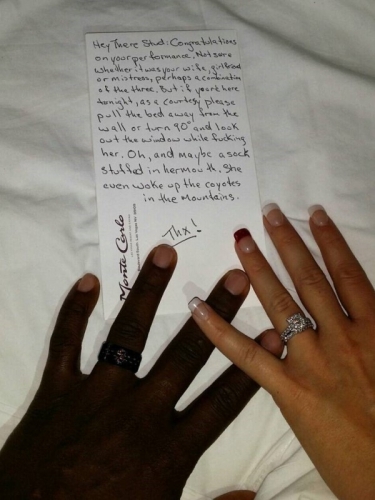 Hey There Stud: Congratulations
on your performance. Not sure
whether it was your wife, girlfriend
or mistress, perhaps a combination
of the three. But if you're here
tonight, as a courtesy please
pull the bed away from the
wall or turn 90° and look
out the window while fucking
her. Oh, and maybe a sock
stuffed in her mouth. She
even woke up the coyotes
in the Mountains.
Thx!
Monte Carlo